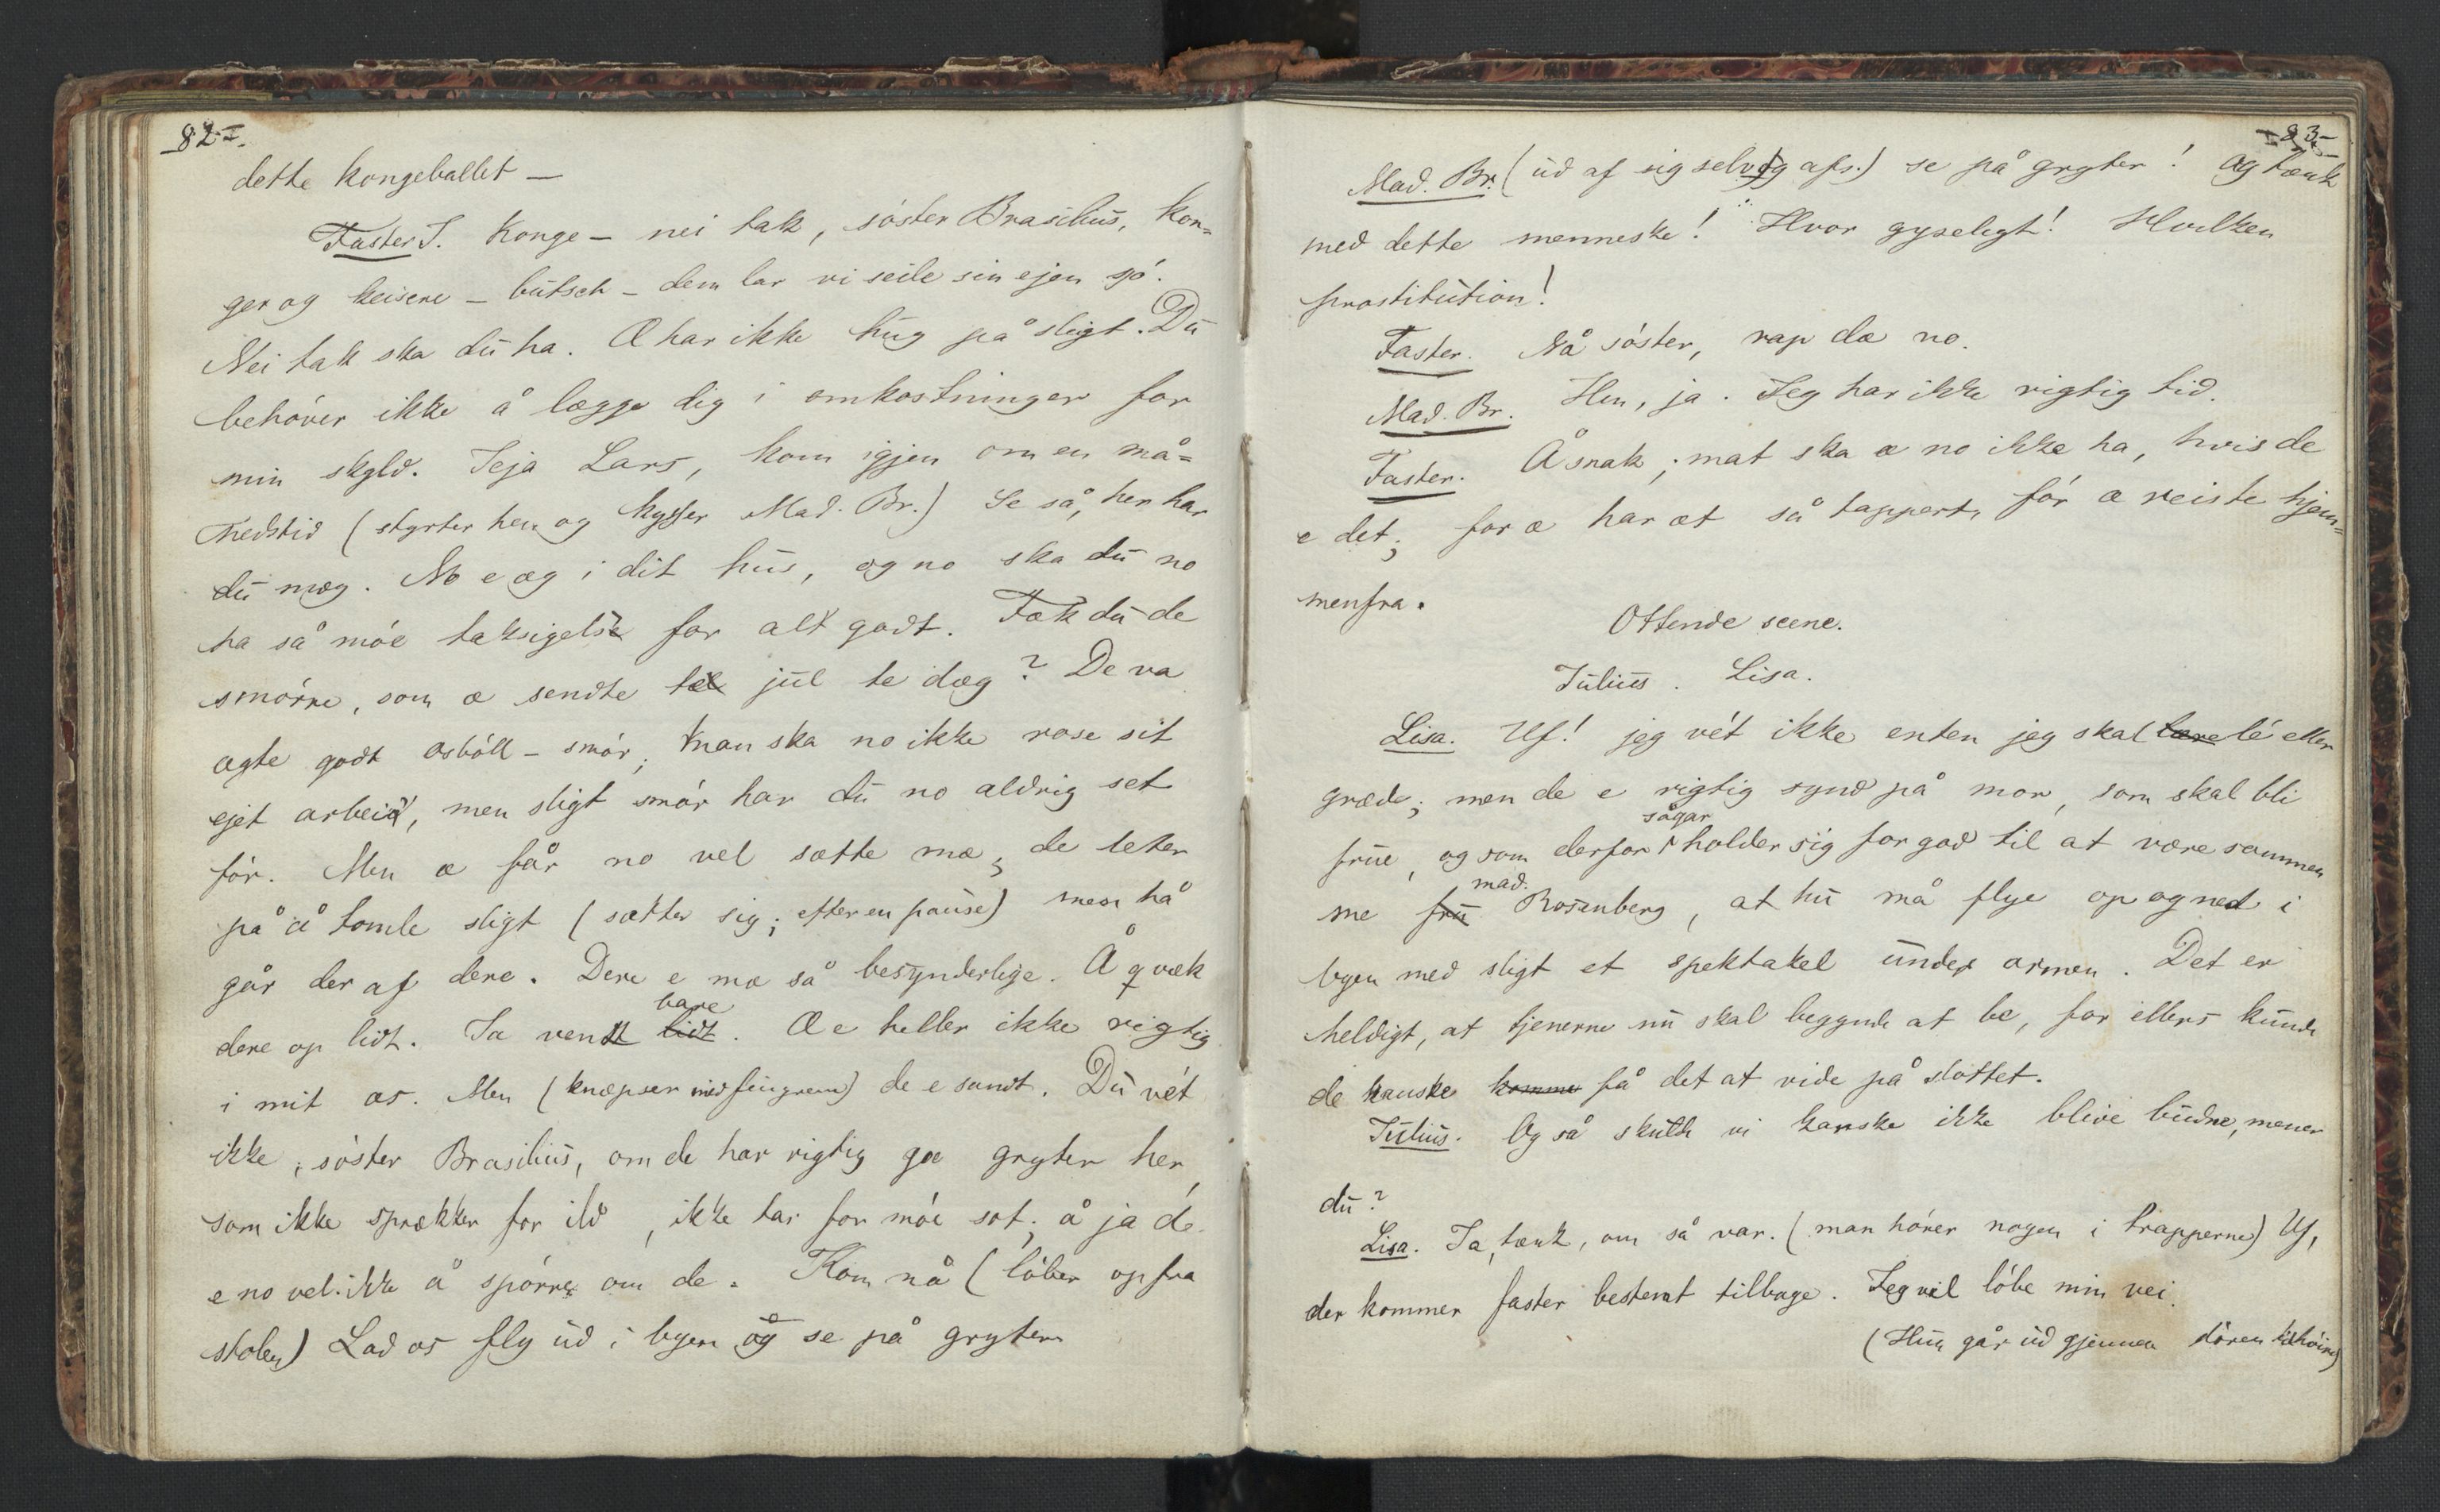 82
dette kongeballet —
Faster J. Konge – nei tak, söster Brasilius, kon-
ger og keisere – butsch – dem lar vi seile sin ejen sjö.
Nei tak ska du ha. Æ har ikke hug på sligt. Du
behöver ikke å lægge dig i omkostninger for
min skyld. Jeja Lars, kom igjen om en må-
nedstid (styrter hen og kysser Mad. Br.) Se så, her har
du mæg. No e æg i dit hus, og no ska du no
ha så möe taksigelse for alt godt. Fæk du de
smörre, som æ sendte tel jul te dæg? De va
ægte godt æsböll-smör; man ska no ikke rose sit
ejet arbeid, men sligt smör har du no aldrig set
för. Men æ får no vel sætte mæ; de leter
på å tomle sligt (sætter sig; efter en pause) men hå
går der af dere. Dere e mæ så besynderlige. Å qvæk
dere op lidt. Ja vent lidt bare. Æ e heller ikke rigtig
i mit æs. Men (knepser med fingrene) de e sandt. Du vét
ikke, söster Brasilius, om de har rigtig goe gryter her,
som ikke sprækker for ild, ikke tar for möe sot; å ja dé
e no vel ikke å spörre om de. Kom nå (löber op fra
stolen) Lad os fly ud i byen og se på gryter
83
Mad. Br. (ud af sig selv og afs.) se på gryter! og tænk
med dette menneske! Hvor gyseligt! Hvilken
prostitution!
Faster. Nå söster, rap dæ no.
Mad. Br. Hm, ja. Jeg har ikke rigtig tid.
Faster. Å snak; mat ska æ no ikke ha, hvis de
e det; for æ har æt så tappert, för æ reiste hjem-
menfra.
Ottende scene.
Julius. Lisa.
Lisa. Uf! jeg vét ikke enten jeg skal lære lé eller
græde; men de e rigtig synd på mor, som skal bli
frue, og som derfor sågar holder sig for god til at være sammen
me fru mad. Rosenberg, at hu må flye op og ned i
byen med sligt et spektakel under armen. Det er
heldigt, at tjenerne nu skal begynde at be, for ellers kunde
de kanske komme få det at vide på slottet.
Julius. Og så skulde vi kanske ikke blive budne, mener
du?
Lisa. Ja, tænk, om så var. (man hörer nogen i trapperne) Uf,
der kommer faster bestemt tilbage. Jeg vil löbe min vei.
(Hun går ud gjennem dören tilhöire)